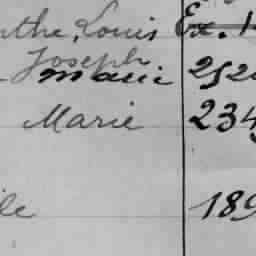 the, Louis Ex. 1
Joseph
Marie 252
Marie 234
le 189